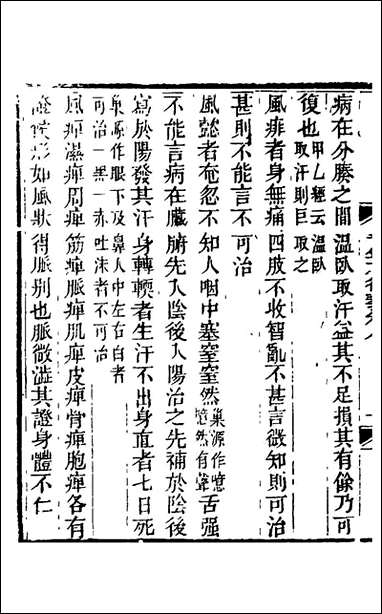 病在分腠之間溫臥取汗益其不足損其有餘乃可
復也甲乙經云溫臥取汗則巨取之
風痱者身無痛四肢不收智亂不甚言微知則可治
甚則不能言不可治
風懿者奄忽不知人咽中塞窒窒然巢源作噫噫然有聲舌强
不能言病在臟腑先入陰後入陽治之先補於陰後
寫於陽發其汗身轉輭者生汗不出身直者七日死
巢源作眼下及鼻人中左右白者可治一黑一赤吐沫者不可治
風痺濕痺周痺筋痺脈痺肌痺皮痺骨痺胞痺各有
證候形如風狀得脈別也脈微澁其證身體不仁